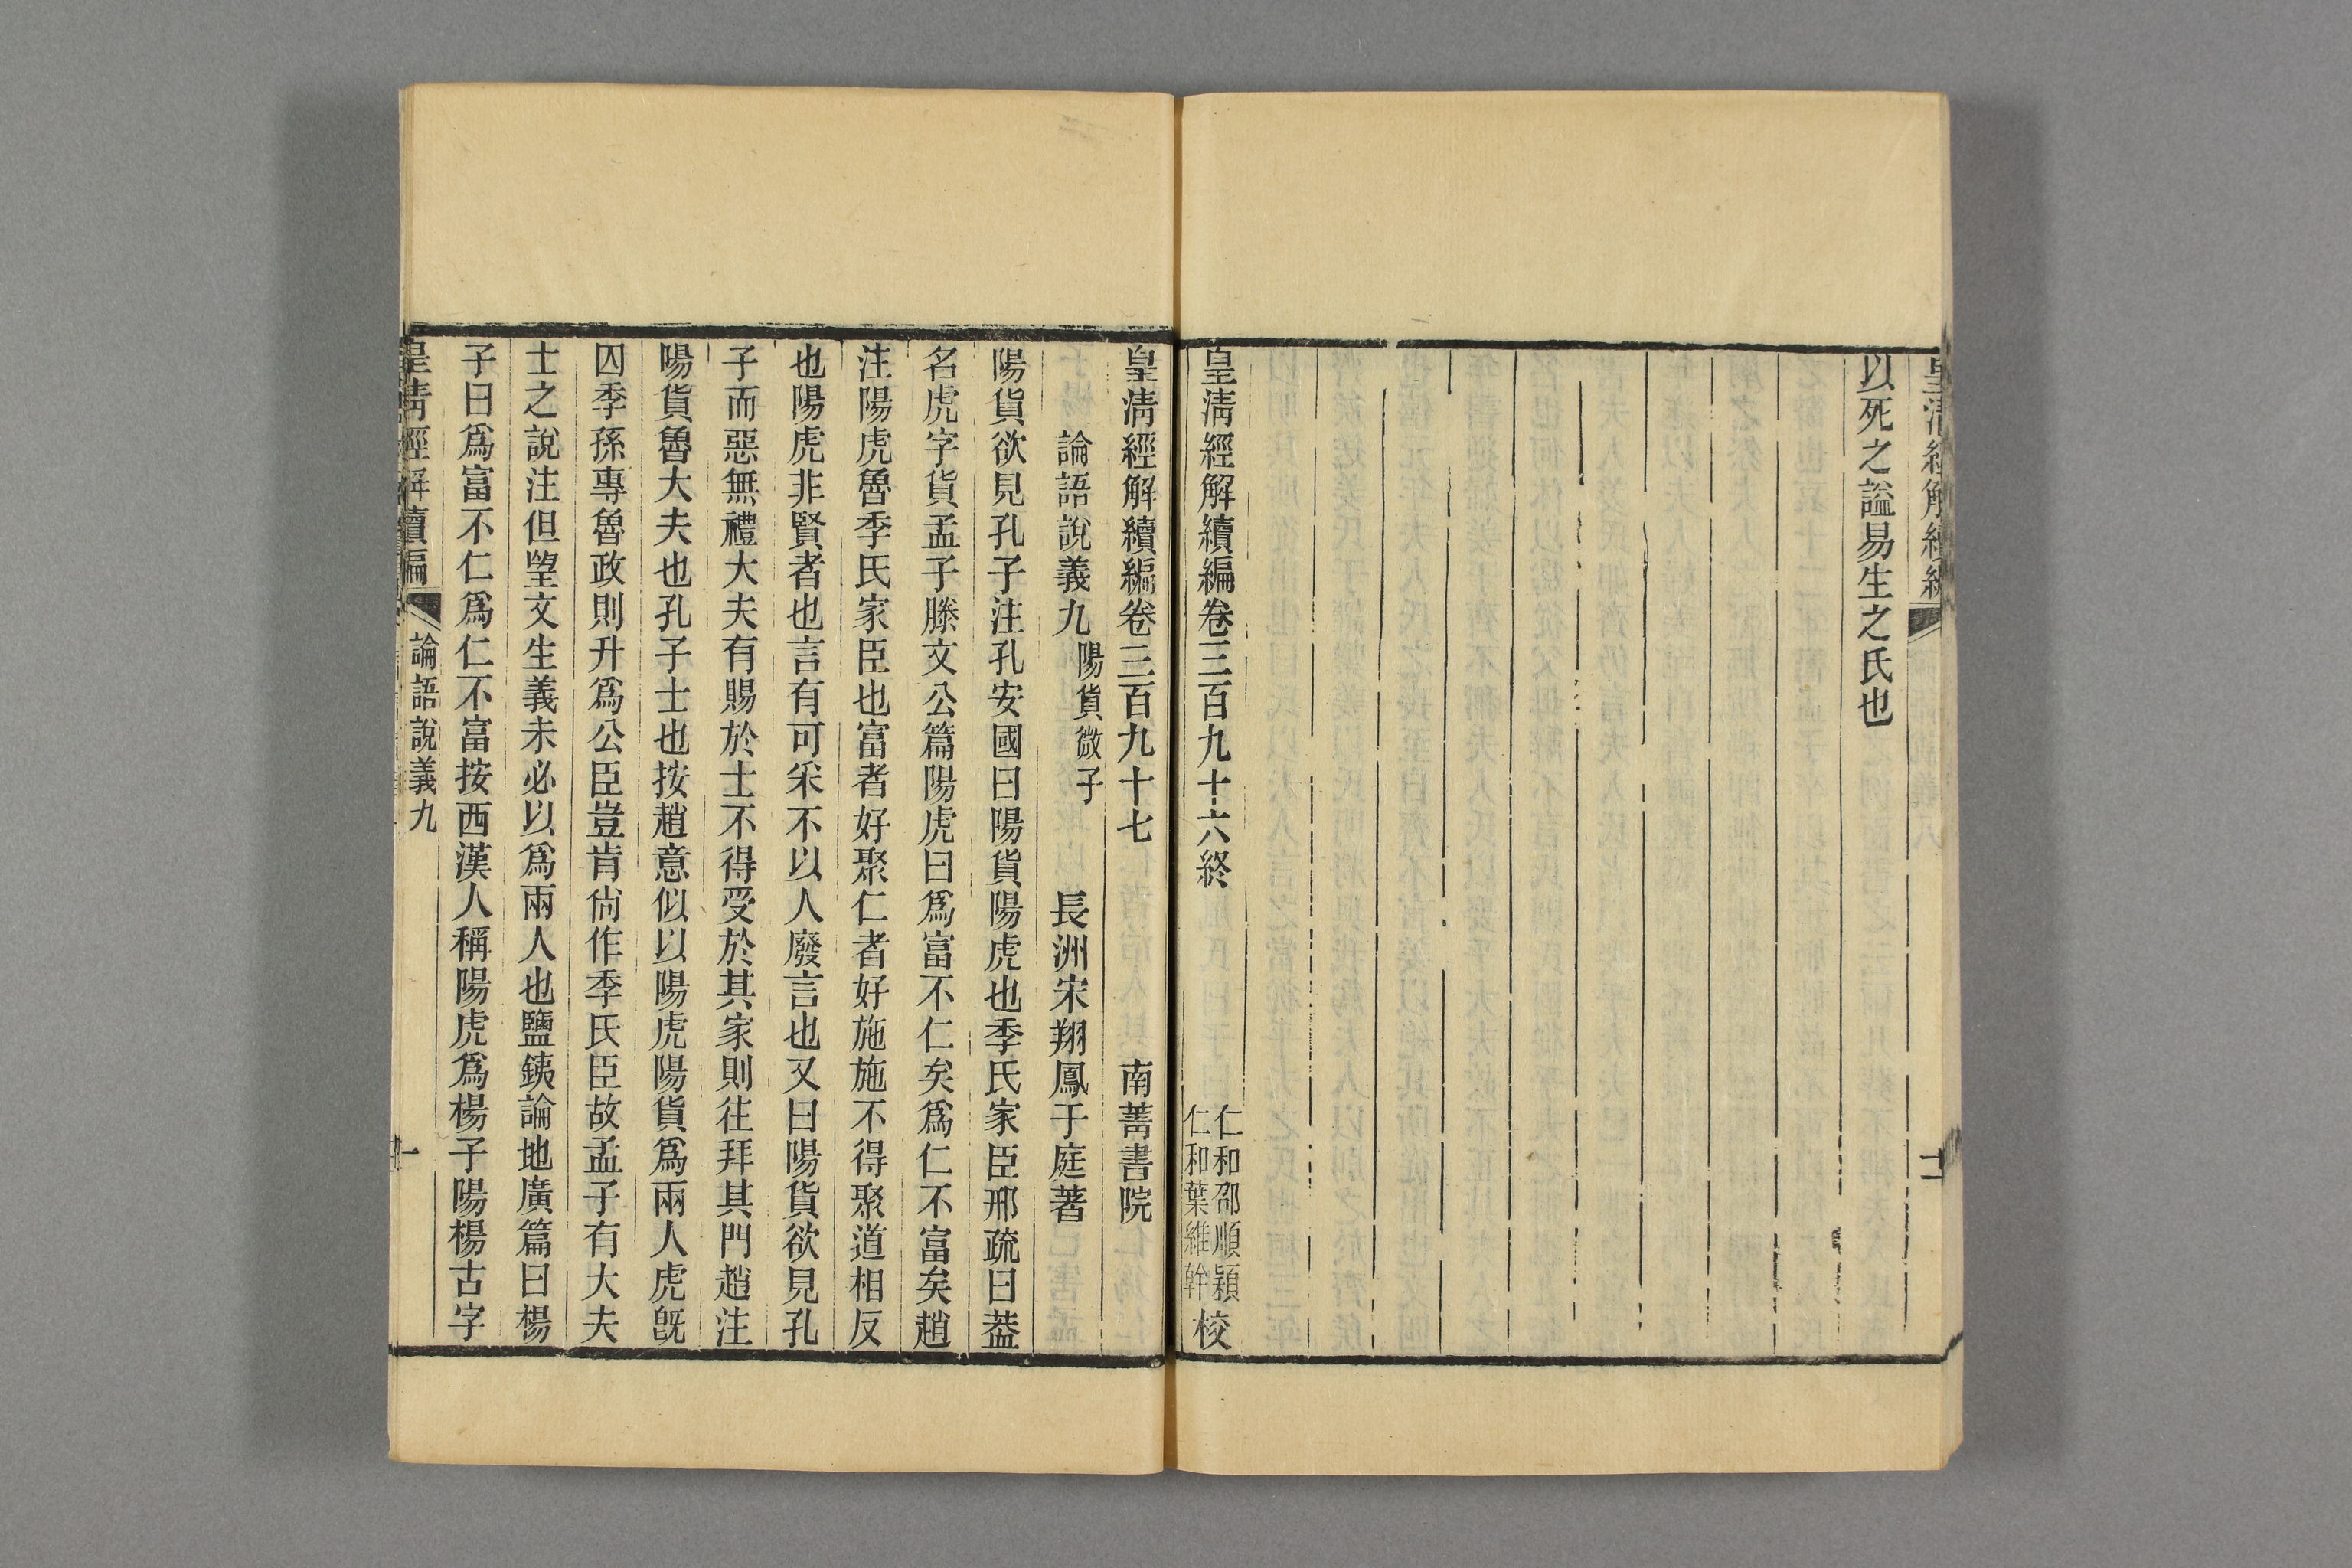 皇清經解續編
十一
以死之謚易生之氏也
皇清經解續編卷三百九十六終
仁和邵順潁
仁和葉維幹
校
皇清經解續編卷三百九十七
南菁書院
論語說義九
陽貨微子
長洲宋翔鳳于庭著
陽貨欲見孔子注孔安國曰陽貨陽虎也季氏家臣邢疏曰葢
名虎字貨孟子滕文公篇陽虎曰爲富不仁矣爲仁不富矣趙
注陽虎魯季氏家臣也富者好聚仁者好施施不得聚道相反
也陽虎非賢者也言有可采不以人廢言也又曰陽貨欲見孔
子而惡無禮大夫有賜於士不得受於其家則往拜其門趙注
陽貨魯大夫也孔子士也按趙意似以陽虎陽貨爲兩人虎旣
囚季孫專魯政則升爲公臣豈肯尙作季氏臣故孟子有大夫
士之說注但望文生義未必以爲兩人也鹽鐵論地廣篇曰楊
子曰爲富不仁爲仁不富按西漢人稱陽虎爲楊子陽楊古字
皇清經解續編
論語說義九
一